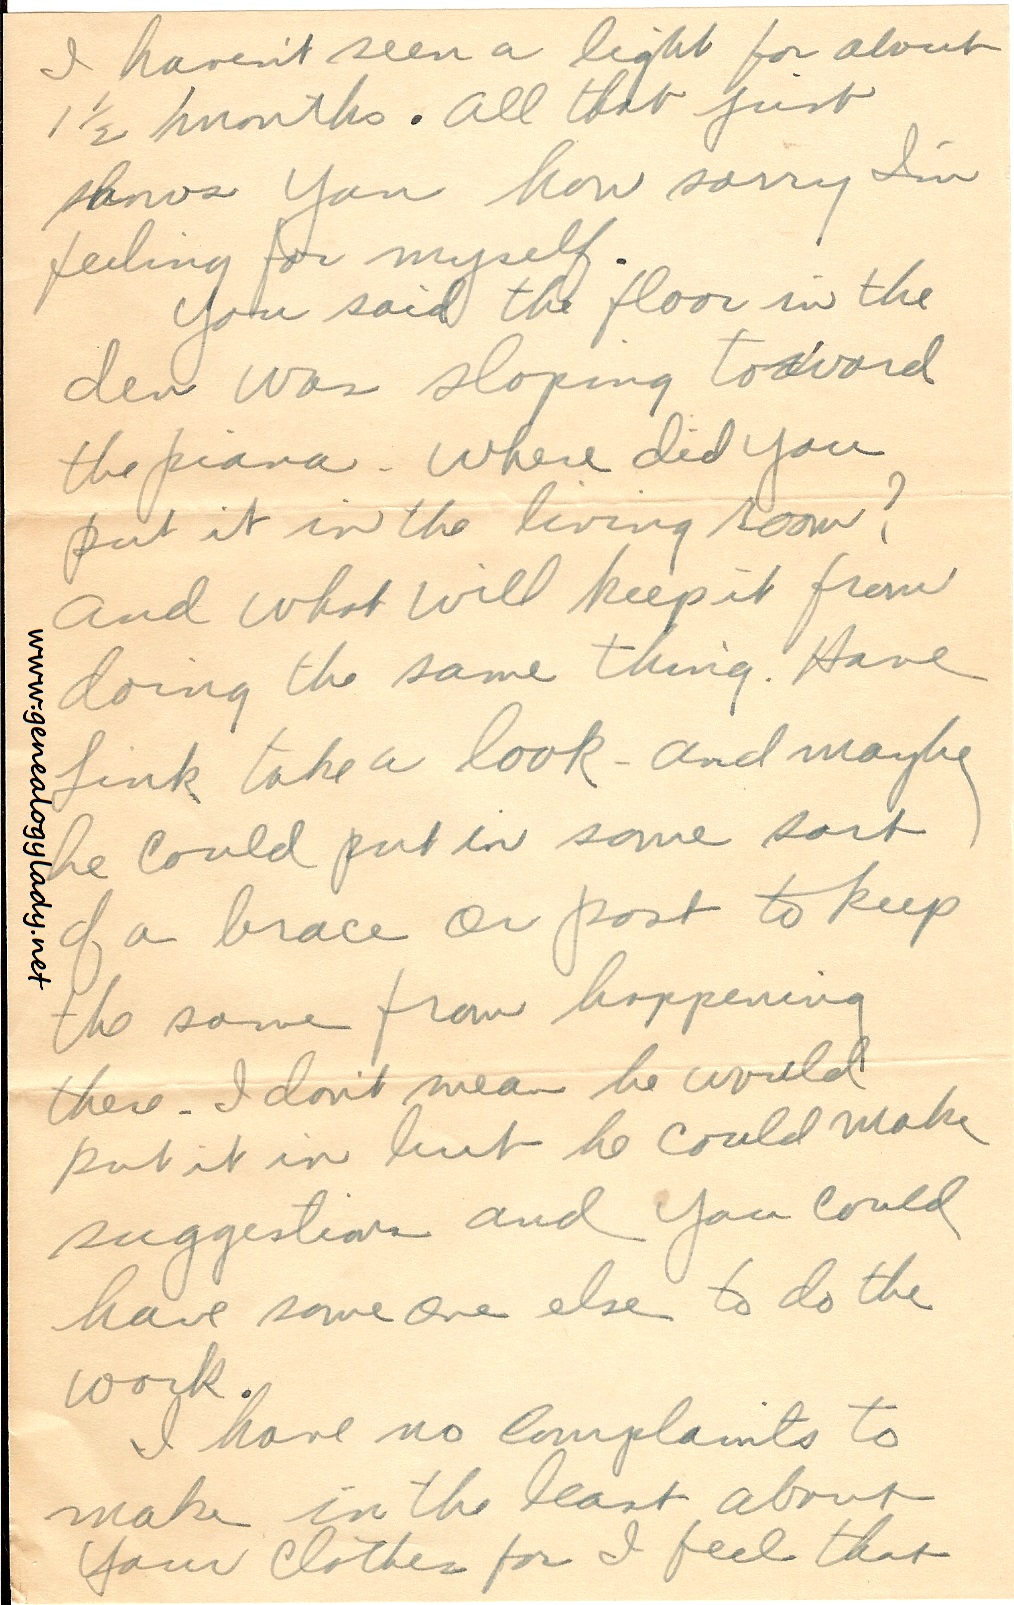 I haven't seen a light for about
1 1/2 months. All that just
shows you how sorry I'm
feeling for myself.
You said the floor in the
den was sloping toward
the piana - where did you
put it in the living room?
And what will keep it from
doing the same thing. Have
Link take a look - and maybe
he could put in some sort
of a brace or post to keep
the same from happening
there - I don't mean he would
put it in but he could make
suggestions and you could
have some one else to do the
work.
I have no complaints to
make in the least about
your clothes for I feel that
www.genealogylady.net